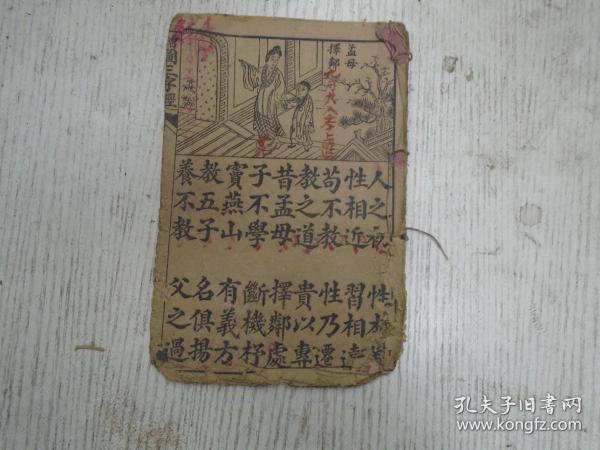 孟母
擇鄰
人之初 性本善
性相近 習相遠
苟不教 性乃遷
教之道 貴以專
昔孟母 擇鄰處
子不學 斷機杼
竇燕山 有義方
教五子 名俱揚
養不教 父之過
圖三字經
孔夫子旧书网
www.kongfz.com